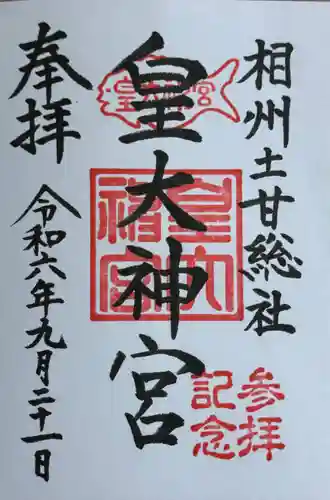 相州土甘総社
皇大神宮
奉拝
令和六年九月二十一日
皇大神宮
皇大神宮
参拝記念